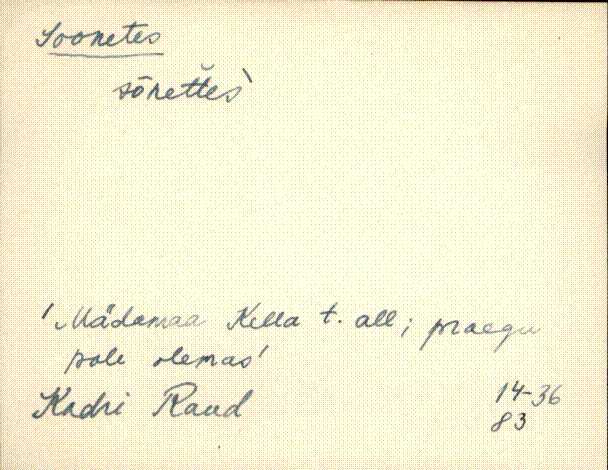 Soonetes
sōnet̆tes`
' Mädamaa Kella t. all; praegu
pole olemas'
Kadri Raud
14-36
83